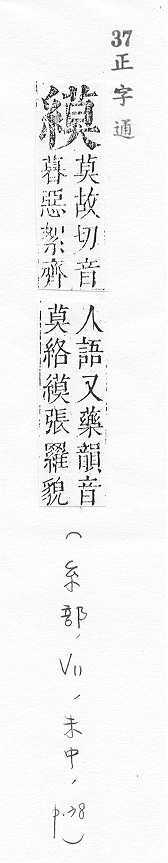 37 正字通
縸
莫故切音
暮惡絮齊
人語又藥韻音
莫絡縸張羅貌
(糸部, V11, 未中, p.78)